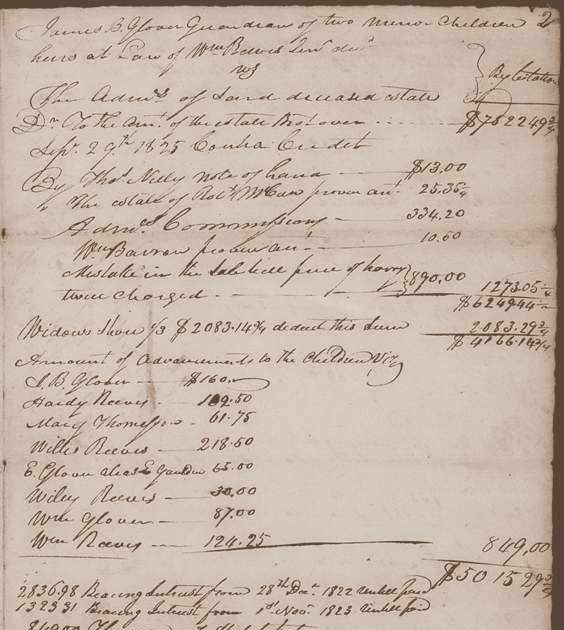 James B. Glover Guardian of two minor children 2
heirs at Law of Wm Reeves Senr decd
vs
The Admrs of said deceased estate By Citation
Dr To the Amt. of the estate Brot over $7522.49 3/4
Sepr. 29th 1825 Contra Credit
By Thos Nelly note of hand $13.00
" The estate of Robt McCaw proven act 25.35 1/4
Admrs Commissions 334.20
Wm Barron proven act 10.50
Mistake in the Sale bill price of horse
twice charged 890.00 1273.05 1/4
$6249.44 1/2
Widows Share 1/3 $2083.14 3/4 deduct this sum 2083.29 3/4
$4166.14 3/4
Amount of advancements to the children Viz
J. B Glover $160.
Hardy Reeves 109.50
Mary Thompson 61.75
Willis Reeves 218.50
E. Glover 65.00
Wiley Reeves 30.00
Wm Glover 87.00
Wm Reeves 124.25 849.00
$5015.29 3/4
2836.98 Bearing Interest from 28th Decr. 1822 untill paid
1323 31 Bearing Interest from 1st Novr. 1823 untill paid